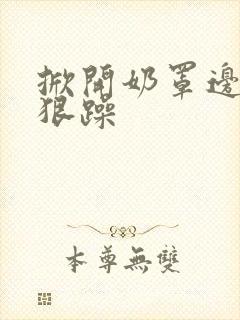 掀開奶罩邊
狠躁
本尊無雙